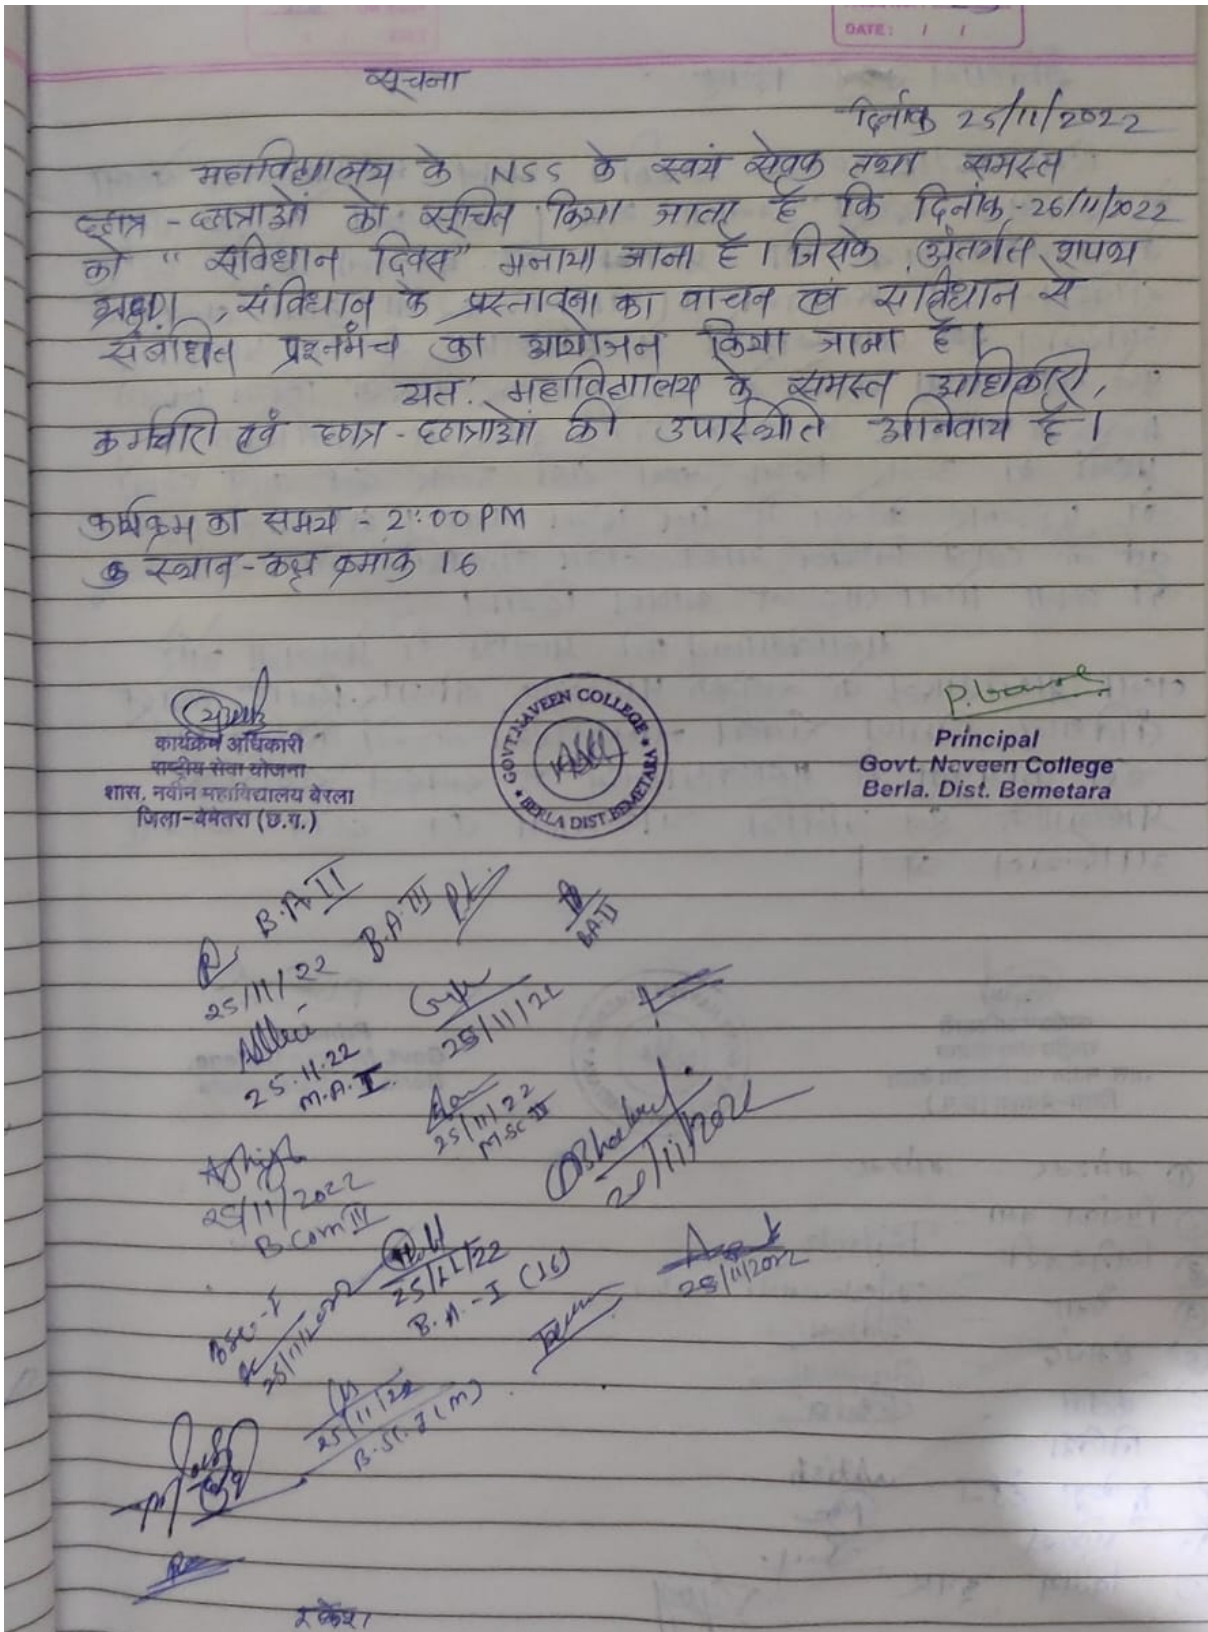 DATE: / /
सूचना
दिनांक 25/11/2022
महाविद्यालय के NSS के स्वयं सेवक तथा समस्त
छात्र - छात्राओं को सूचित किया जाता है कि दिनांक - 26/11/2022
को " संविधान दिवस" मनाया जाना है । जिसके अंतर्गत शपथ
ग्रहण, संविधान के प्रस्तावना का वाचन एवं संविधान से
संबंधित प्रश्नमंच का आयोजन किया जाना है।
अत: महाविद्यालय के समस्त अधिकारी,
कर्मचारी एवं छात्र - छात्राओं की उपस्थिति अनिवार्य है ।
कार्यक्रम का समय - 2:00 PM
स्थान - कक्ष क्रमांक 16
P. 
कार्यक्रम अधिकारी
राष्ट्रीय सेवा योजना
शास. नवीन महाविद्यालय बेरला
जिला-बेमेतरा (छ.ग.)
GOVT. NAVEEN COLLEGE
BERLA DIST. BEMETARA
Principal
Govt. Naveen College
Berla. Dist. Bemetara
B.A II
25/11/22
B.A III
B.A-II
25/11/22
25.11.22
M.A. I
25/11/22
M.SC III
25/11/2022
25/11/2022
B.Com III
25/11/22
B.A.-I (16)
25/11/2022
BSC-I
25/11/2022
25/11/22
B.SC. I (M)